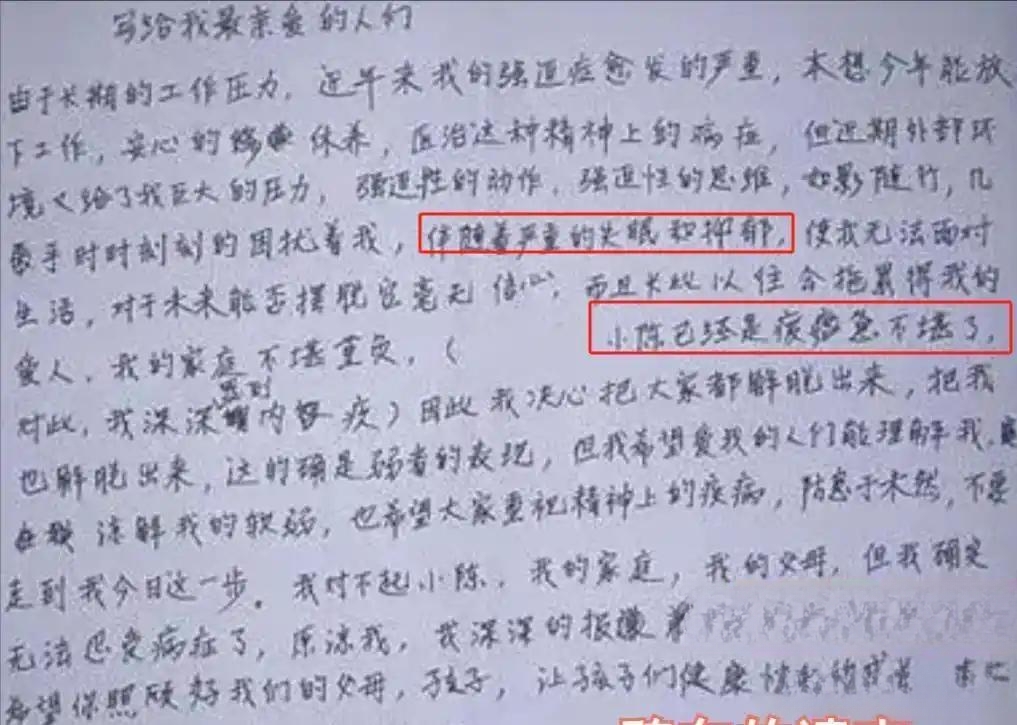 写给我最亲爱的人们
由于长期的工作压力，近年来我的强迫症愈发的严重，本想今年能放
下工作，安心的休养，医治这种精神上的病症，但近期外部环
境又给了我巨大的压力，强迫性的动作，强迫性的思维，如影随行，几
乎时时刻刻的困扰着我，伴随着严重的失眠和抑郁，使我无法面对
生活，对于未来能否摆脱它毫无信心，而且长此以往会拖累得我的
爱人、我的家庭不堪重负，（小陈已经是疲惫不堪了，
对此，我深深感到内疚）因此我决心把大家都解脱出来，把我
也解脱出来，这的确是弱者的表现，但我希望爱我的人们能理解我，
谅解我的软弱，也希望大家重视精神上的疾病，防患于未然，不要
走到我今日这一步。我对不起小陈、我的家庭，我的父母，但我确实
无法忍受病症了，原谅我，我深深的抱歉
希望你照顾好我们的父母，孩子，让孩子们健康